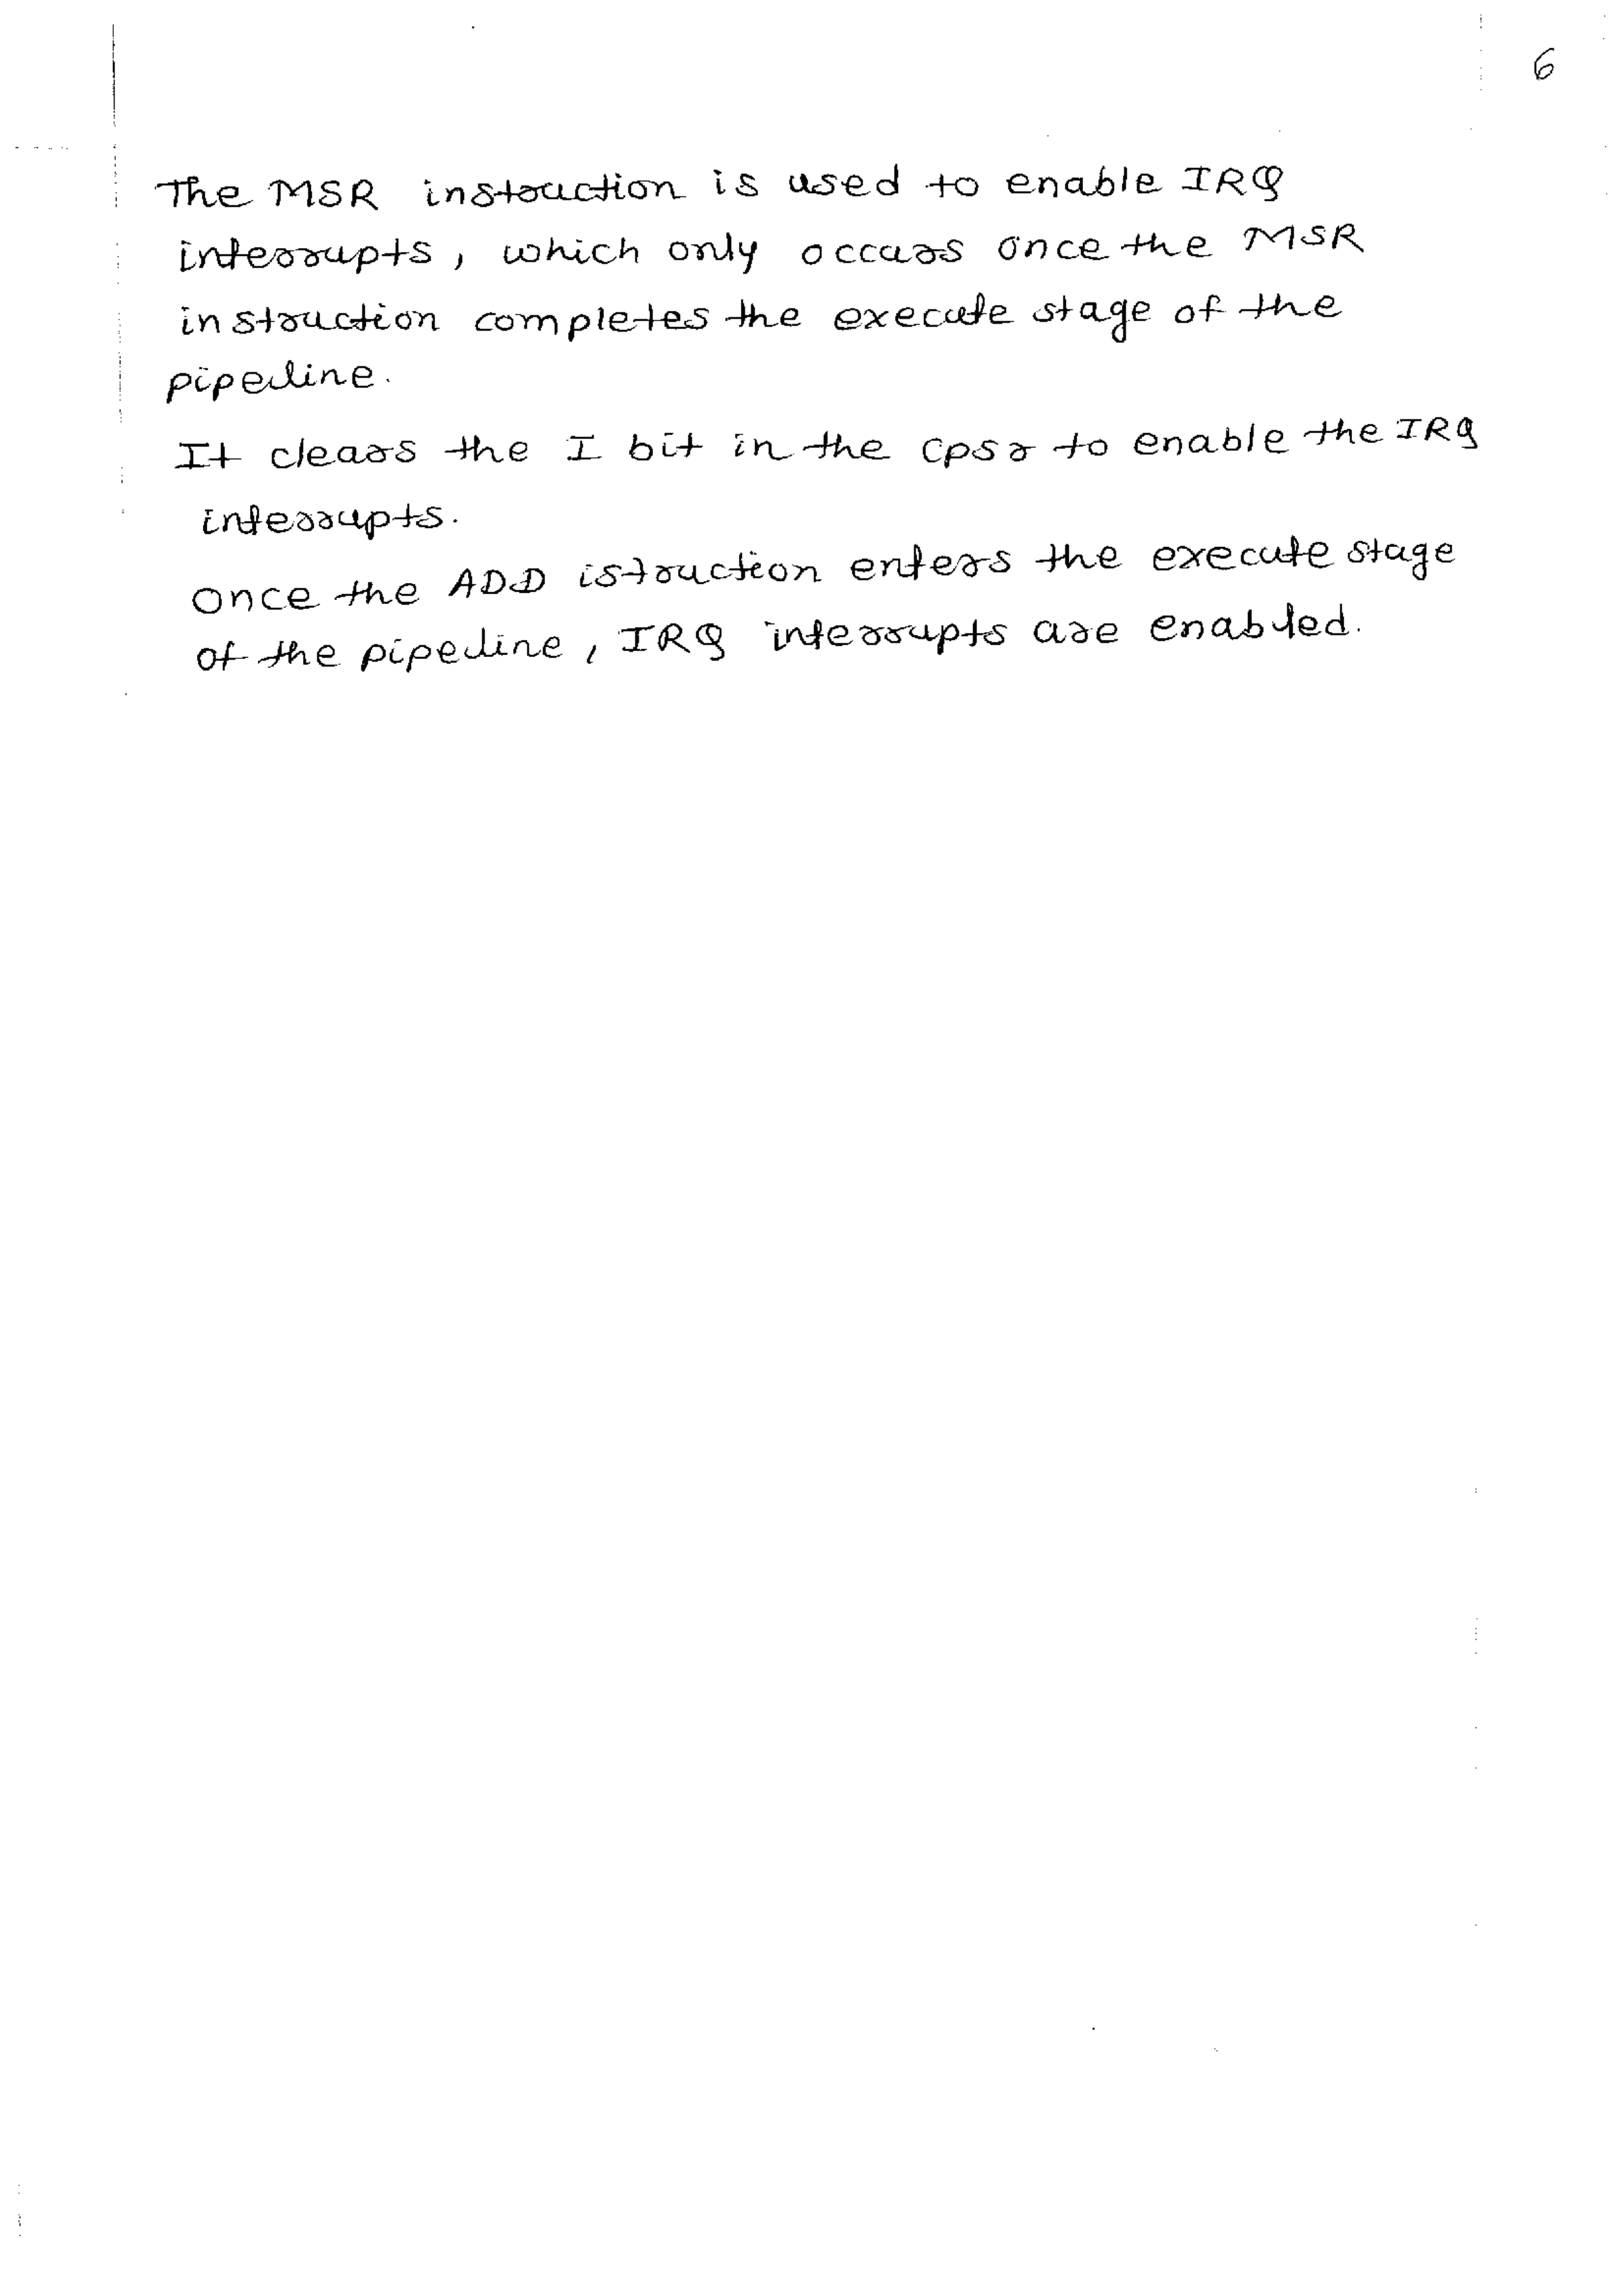 6
The MSR instruction is used to enable IRQ
interrupts, which only occurs once the MSR
instruction completes the execute stage of the
pipeline.
It clears the I bit in the cpsr to enable the IRQ
interrupts.
Once the ADD istruction enters the execute stage
of the pipeline, IRQ interrupts are enabled.